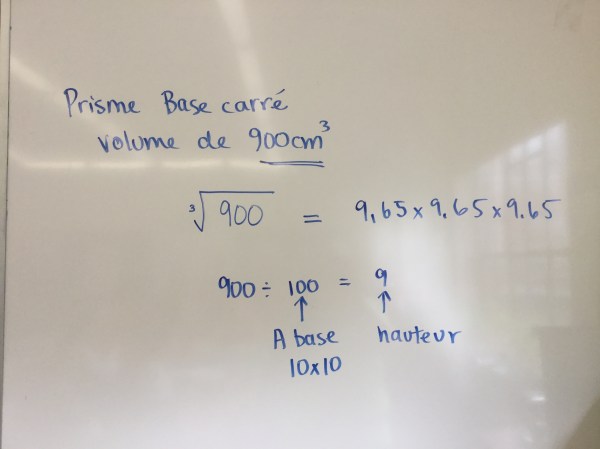 Prisme Base carré
volume de 900cm³
³√900 = 9,65 x 9.65 x 9.65
900 ÷ 100 = 9
↑ ↑
A base hauteur
10x10